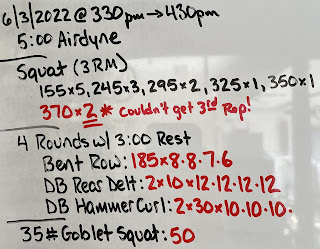 6/3/2022 @ 330pm → 430pm
5:00 Airdyne
Squat (3RM)
155x5, 245x3, 295x2, 325x1, 350x1
370x2* Couldn't get 3rd Rep!
4 Rounds w/ 3:00 Rest
Bent Row: 185x8·8·7·6
DB Rear Delt: 2x10x12·12·12·12
DB Hammer Curl: 2x30x10·10·10·
35# Goblet Squat: 50